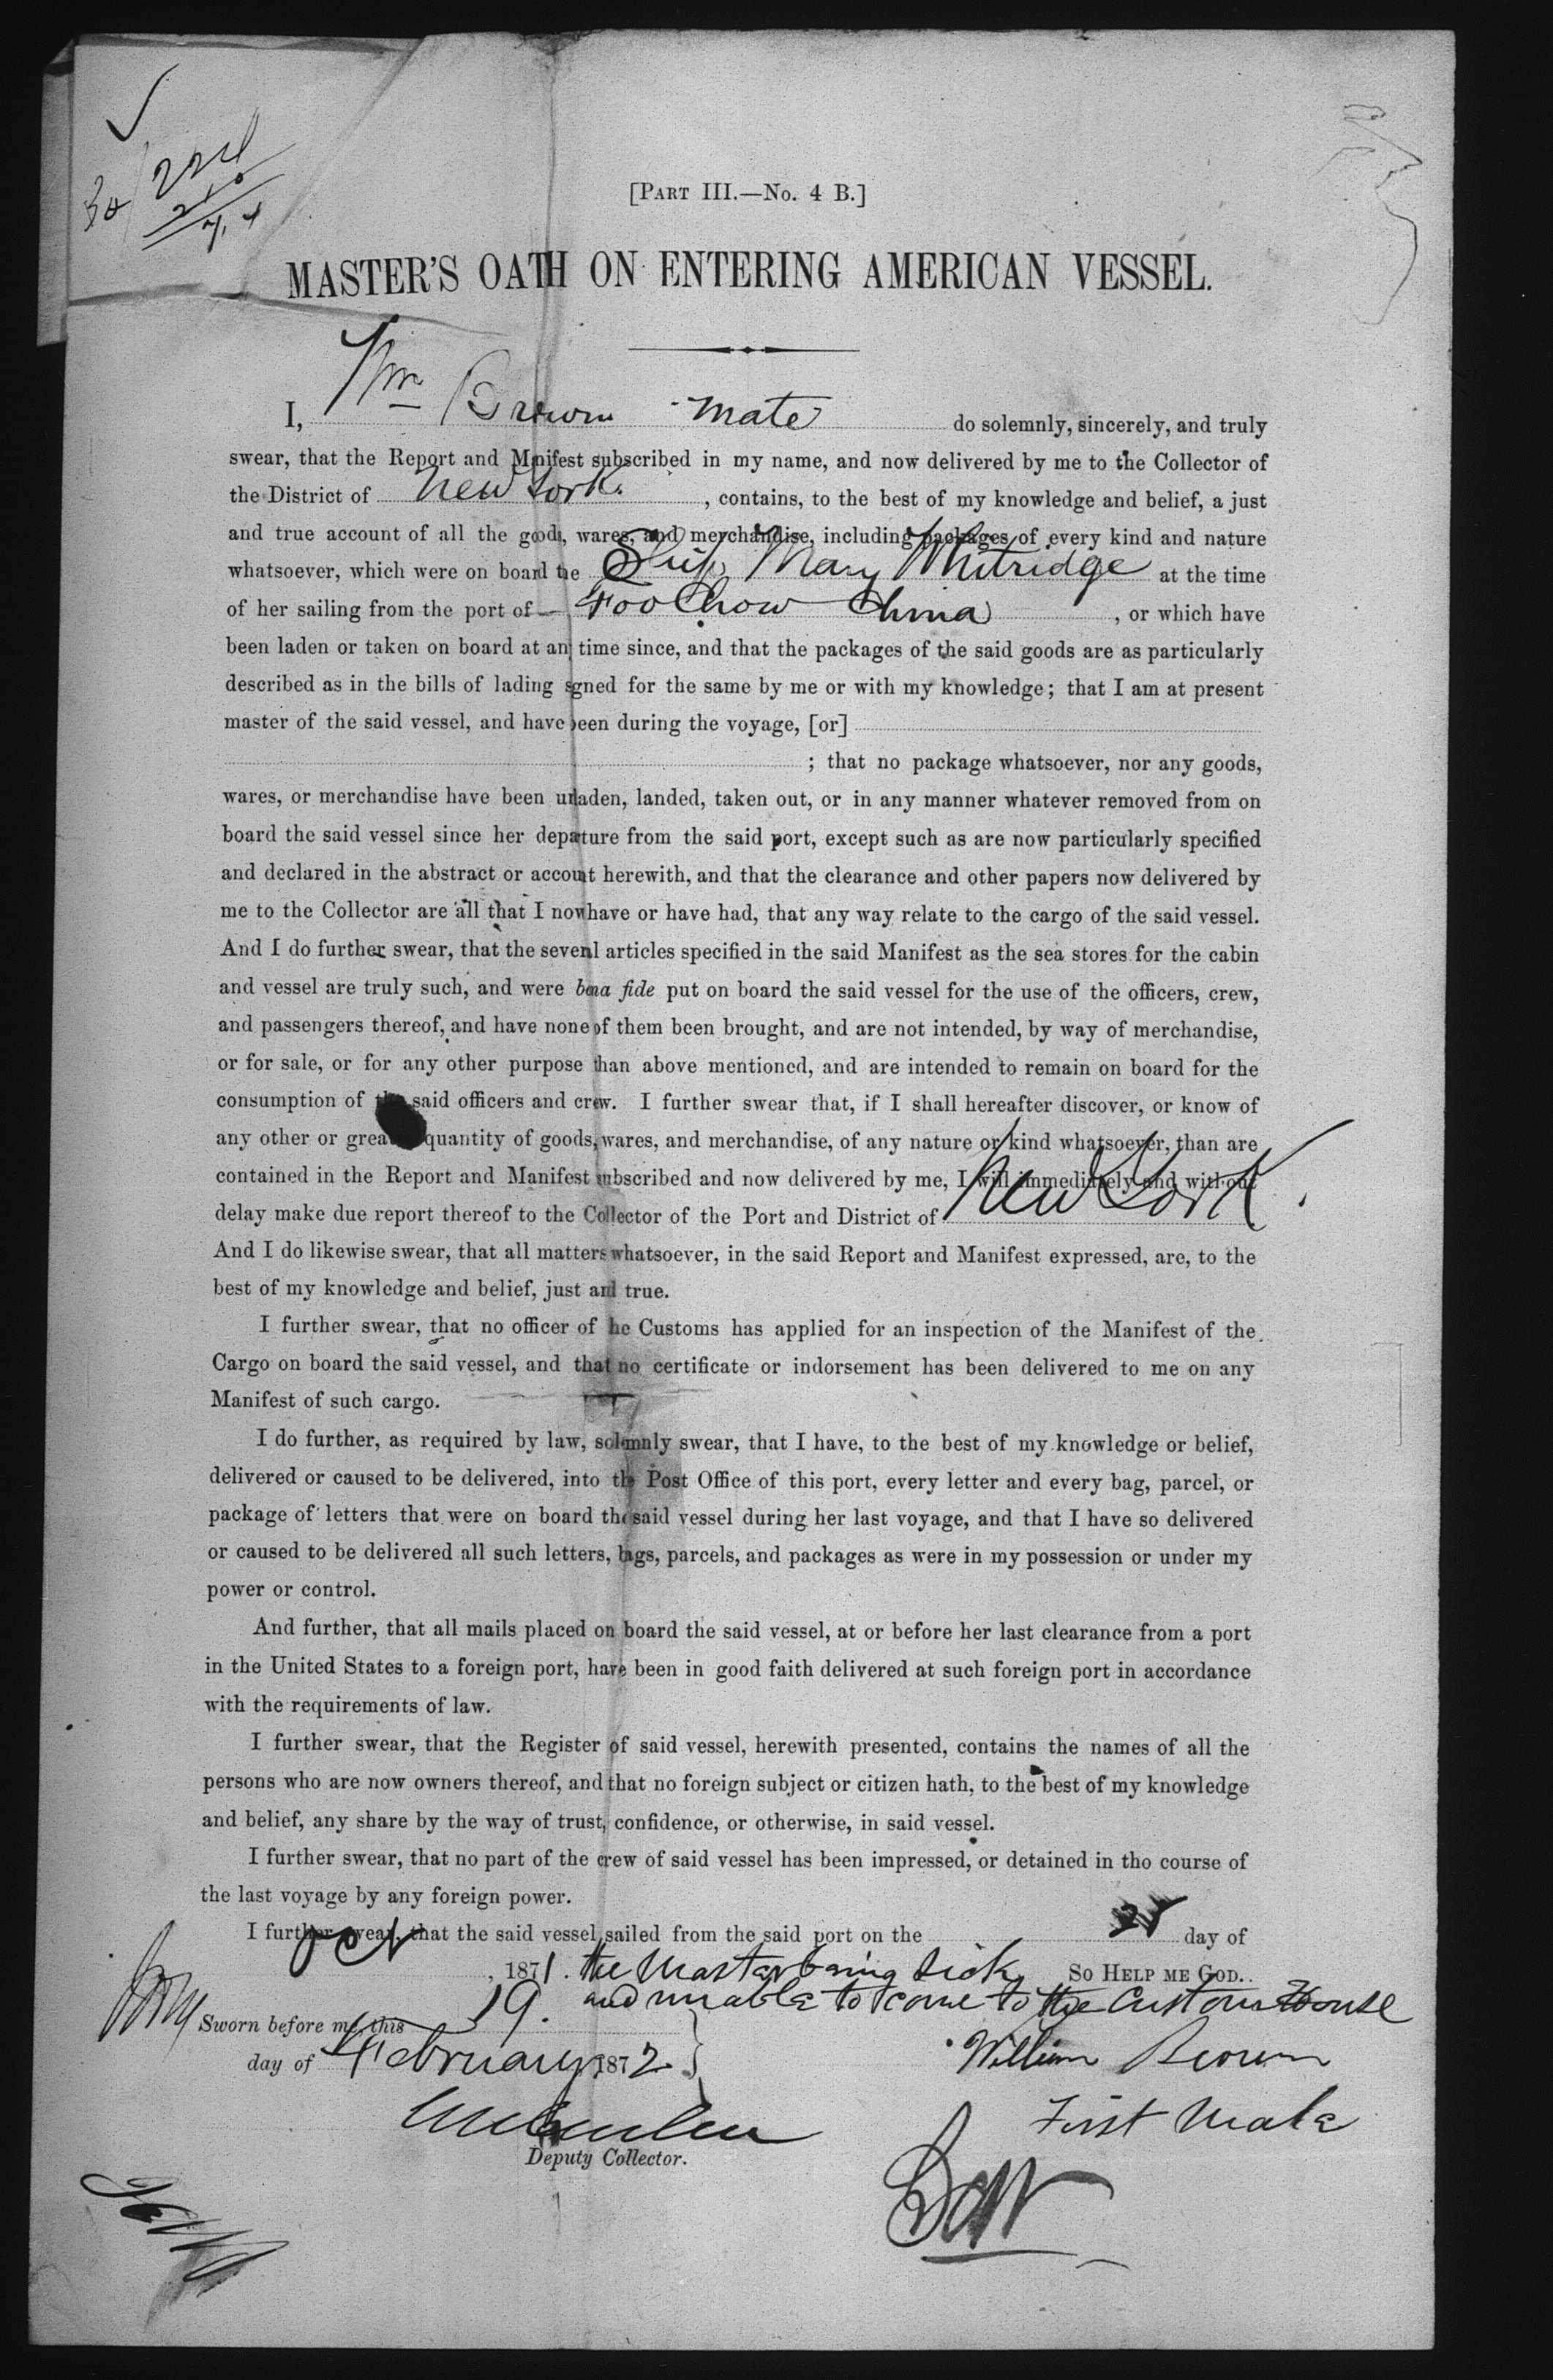 [PART III.—No. 4 B.]
MASTER'S OATH ON ENTERING AMERICAN VESSEL.
I, Wm Brown Mate do solemnly, sincerely, and truly
swear, that the Report and Manifest subscribed in my name, and now delivered by me to the Collector of
the District of New York, contains, to the best of my knowledge and belief, a just
and true account of all the goods, wares, and merchandise, including packages of every kind and nature
whatsoever, which were on board the Ship Mary Whitridge at the time
of her sailing from the port of Foo Chow China, or which have
been laden or taken on board at any time since, and that the packages of the said goods are as particularly
described as in the bills of lading signed for the same by me or with my knowledge; that I am at present
master of the said vessel, and have been during the voyage, [or]
; that no package whatsoever, nor any goods,
wares, or merchandise have been unladen, landed, taken out, or in any manner whatever removed from on
board the said vessel since her departure from the said port, except such as are now particularly specified
and declared in the abstract or account herewith, and that the clearance and other papers now delivered by
me to the Collector are all that I now have or have had, that any way relate to the cargo of the said vessel.
And I do further swear, that the several articles specified in the said Manifest as the sea stores for the cabin
and vessel are truly such, and were bona fide put on board the said vessel for the use of the officers, crew,
and passengers thereof, and have none of them been brought, and are not intended, by way of merchandise,
or for sale, or for any other purpose than above mentioned, and are intended to remain on board for the
consumption of the said officers and crew. I further swear that, if I shall hereafter discover, or know of
any other or greater quantity of goods, wares, and merchandise, of any nature or kind whatsoever, than are
contained in the Report and Manifest subscribed and now delivered by me, I will immediately and without
delay make due report thereof to the Collector of the Port and District of New York.
And I do likewise swear, that all matters whatsoever, in the said Report and Manifest expressed, are, to the
best of my knowledge and belief, just and true.
I further swear, that no officer of the Customs has applied for an inspection of the Manifest of the
Cargo on board the said vessel, and that no certificate or indorsement has been delivered to me on any
Manifest of such cargo.
I do further, as required by law, solemnly swear, that I have, to the best of my knowledge or belief,
delivered or caused to be delivered, into the Post Office of this port, every letter and every bag, parcel, or
package of letters that were on board the said vessel during her last voyage, and that I have so delivered
or caused to be delivered all such letters, bags, parcels, and packages as were in my possession or under my
power or control.
And further, that all mails placed on board the said vessel, at or before her last clearance from a port
in the United States to a foreign port, have been in good faith delivered at such foreign port in accordance
with the requirements of law.
I further swear, that the Register of said vessel, herewith presented, contains the names of all the
persons who are now owners thereof, and that no foreign subject or citizen hath, to the best of my knowledge
and belief, any share by the way of trust, confidence, or otherwise, in said vessel.
I further swear, that no part of the crew of said vessel has been impressed, or detained in tho course of
the last voyage by any foreign power.
I further swear, that the said vessel sailed from the said port on the day of
Oct, 1871. the Master being Sick SO HELP ME GOD.
and unable to come to the Custom House
Sworn before me, this 19.
day of February 1872
William Brown
First Mate
Deputy Collector.